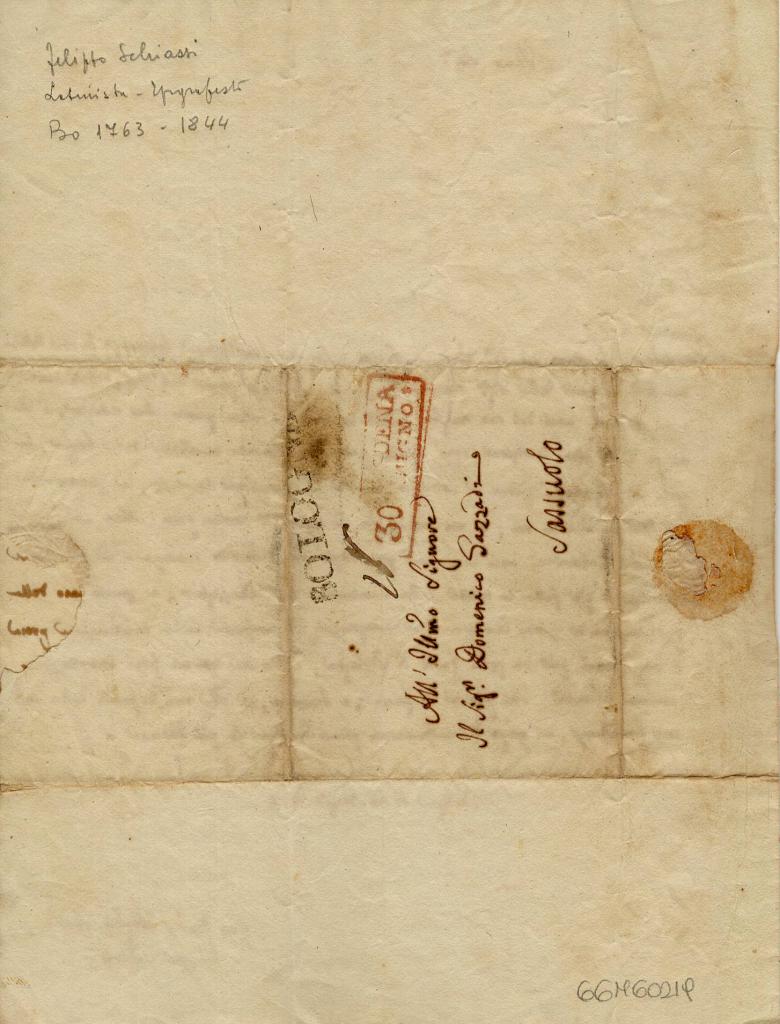 Filippo Schiassi
Latinista - Epigrafista
Bo 1763 - 1844
BOLOG
DENA
30 IUGNO
All' Illmo Signore
Il Sigr. Domenico Gazzadi
Sassuolo